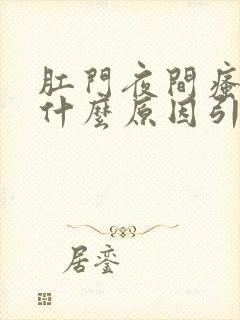 肛門夜間瘙
什麼原因引
居鸞